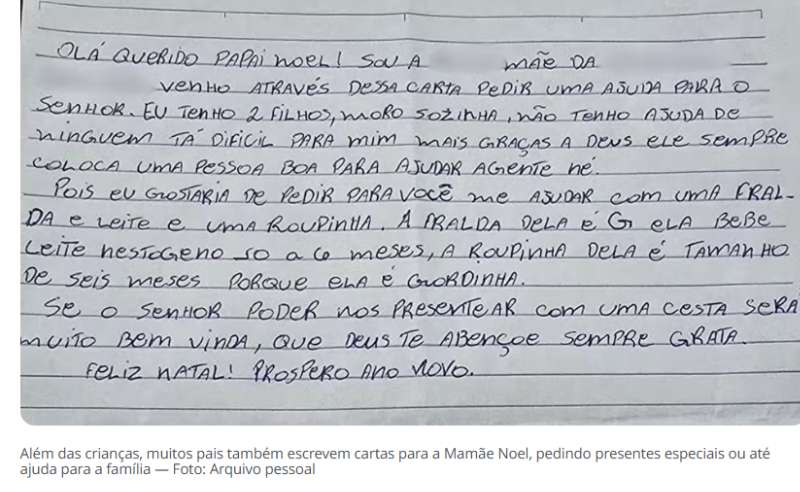 OLÁ QUERIDO PAPAI NOEL! SOU A MÃE DA
VENHO ATRAVÉS DESSA CARTA PEDIR UMA AJUDA PARA O
SENHOR. EU TENHO 2 FILHOS, MORO SOZINHA, NÃO TENHO AJUDA DE
NINGUEM TÁ DIFICIL PARA MIM MAIS GRAÇAS A DEUS ELE SEMPRE
COLOCA UMA PESSOA BOA PARA AJUDAR AGENTE NÉ.
POIS EU GOSTARIA DE PEDIR PARA VOCÊ ME AJUDAR COM UMA FRAL-
DA E LEITE E UMA ROUPINHA. A FRALDA DELA É G ELA BEBE
LEITE NESTOGENO 0 A 6 MESES, A ROUPINHA DELA É TAMANHO
DE SEIS MESES PORQUE ELA É GORDINHA.
SE O SENHOR PODER NOS PRESENTEAR COM UMA CESTA SERA
MUITO BEM VINDA, QUE DEUS TE ABENÇOE SEMPRE GRATA.
FELIZ NATAL! PROSPERO ANO NOVO.
Além das crianças, muitos pais também escrevem cartas para a Mamãe Noel, pedindo presentes especiais ou até
ajuda para a família — Foto: Arquivo pessoal